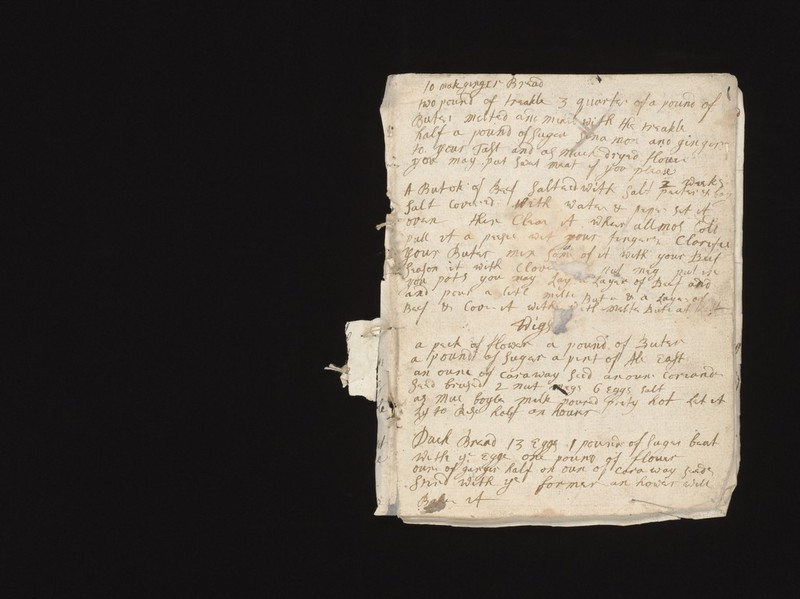 to mak ginger Bread
two pound of treakle 3 quarter of a pound of
Buter melted and mixd with the treakle
half a pound of Sugar Sinamon and ginger
to your Tast and as Much dryed flower
you may put Sweet meat if you please
A Butok of Beef Salted with Salt peter &
Salt Covered With water & pepe Set it
oven then Clear it when allmos Cold
pull it a peeses wit your fingers Clarifie
your Buter mix Some of it with your Beef
Season it with Cloves nut meg put in
you pots you may Lay a Layer of Beef and
and pour a litl melte Buter & a Layer of
Beef & Cover it with with Melte Buter at
Wigs
a peck of flower a pound of Buter
a pound of Sugar a pint of Ale East
an ounc of Caraway Seed an oun Coriande
Seed brused 2 nut megs 6 Eggs Salt
as Muc boyle milk poured prity hot let it
ly to Rise half an houer
Duch Bread 13 Eggs 1 pound of Suger beat
With ye Eggs one pound of flower
ounc of ginger half an oun of Caraway Seeds
Stird with ye former an hower will
Bake it